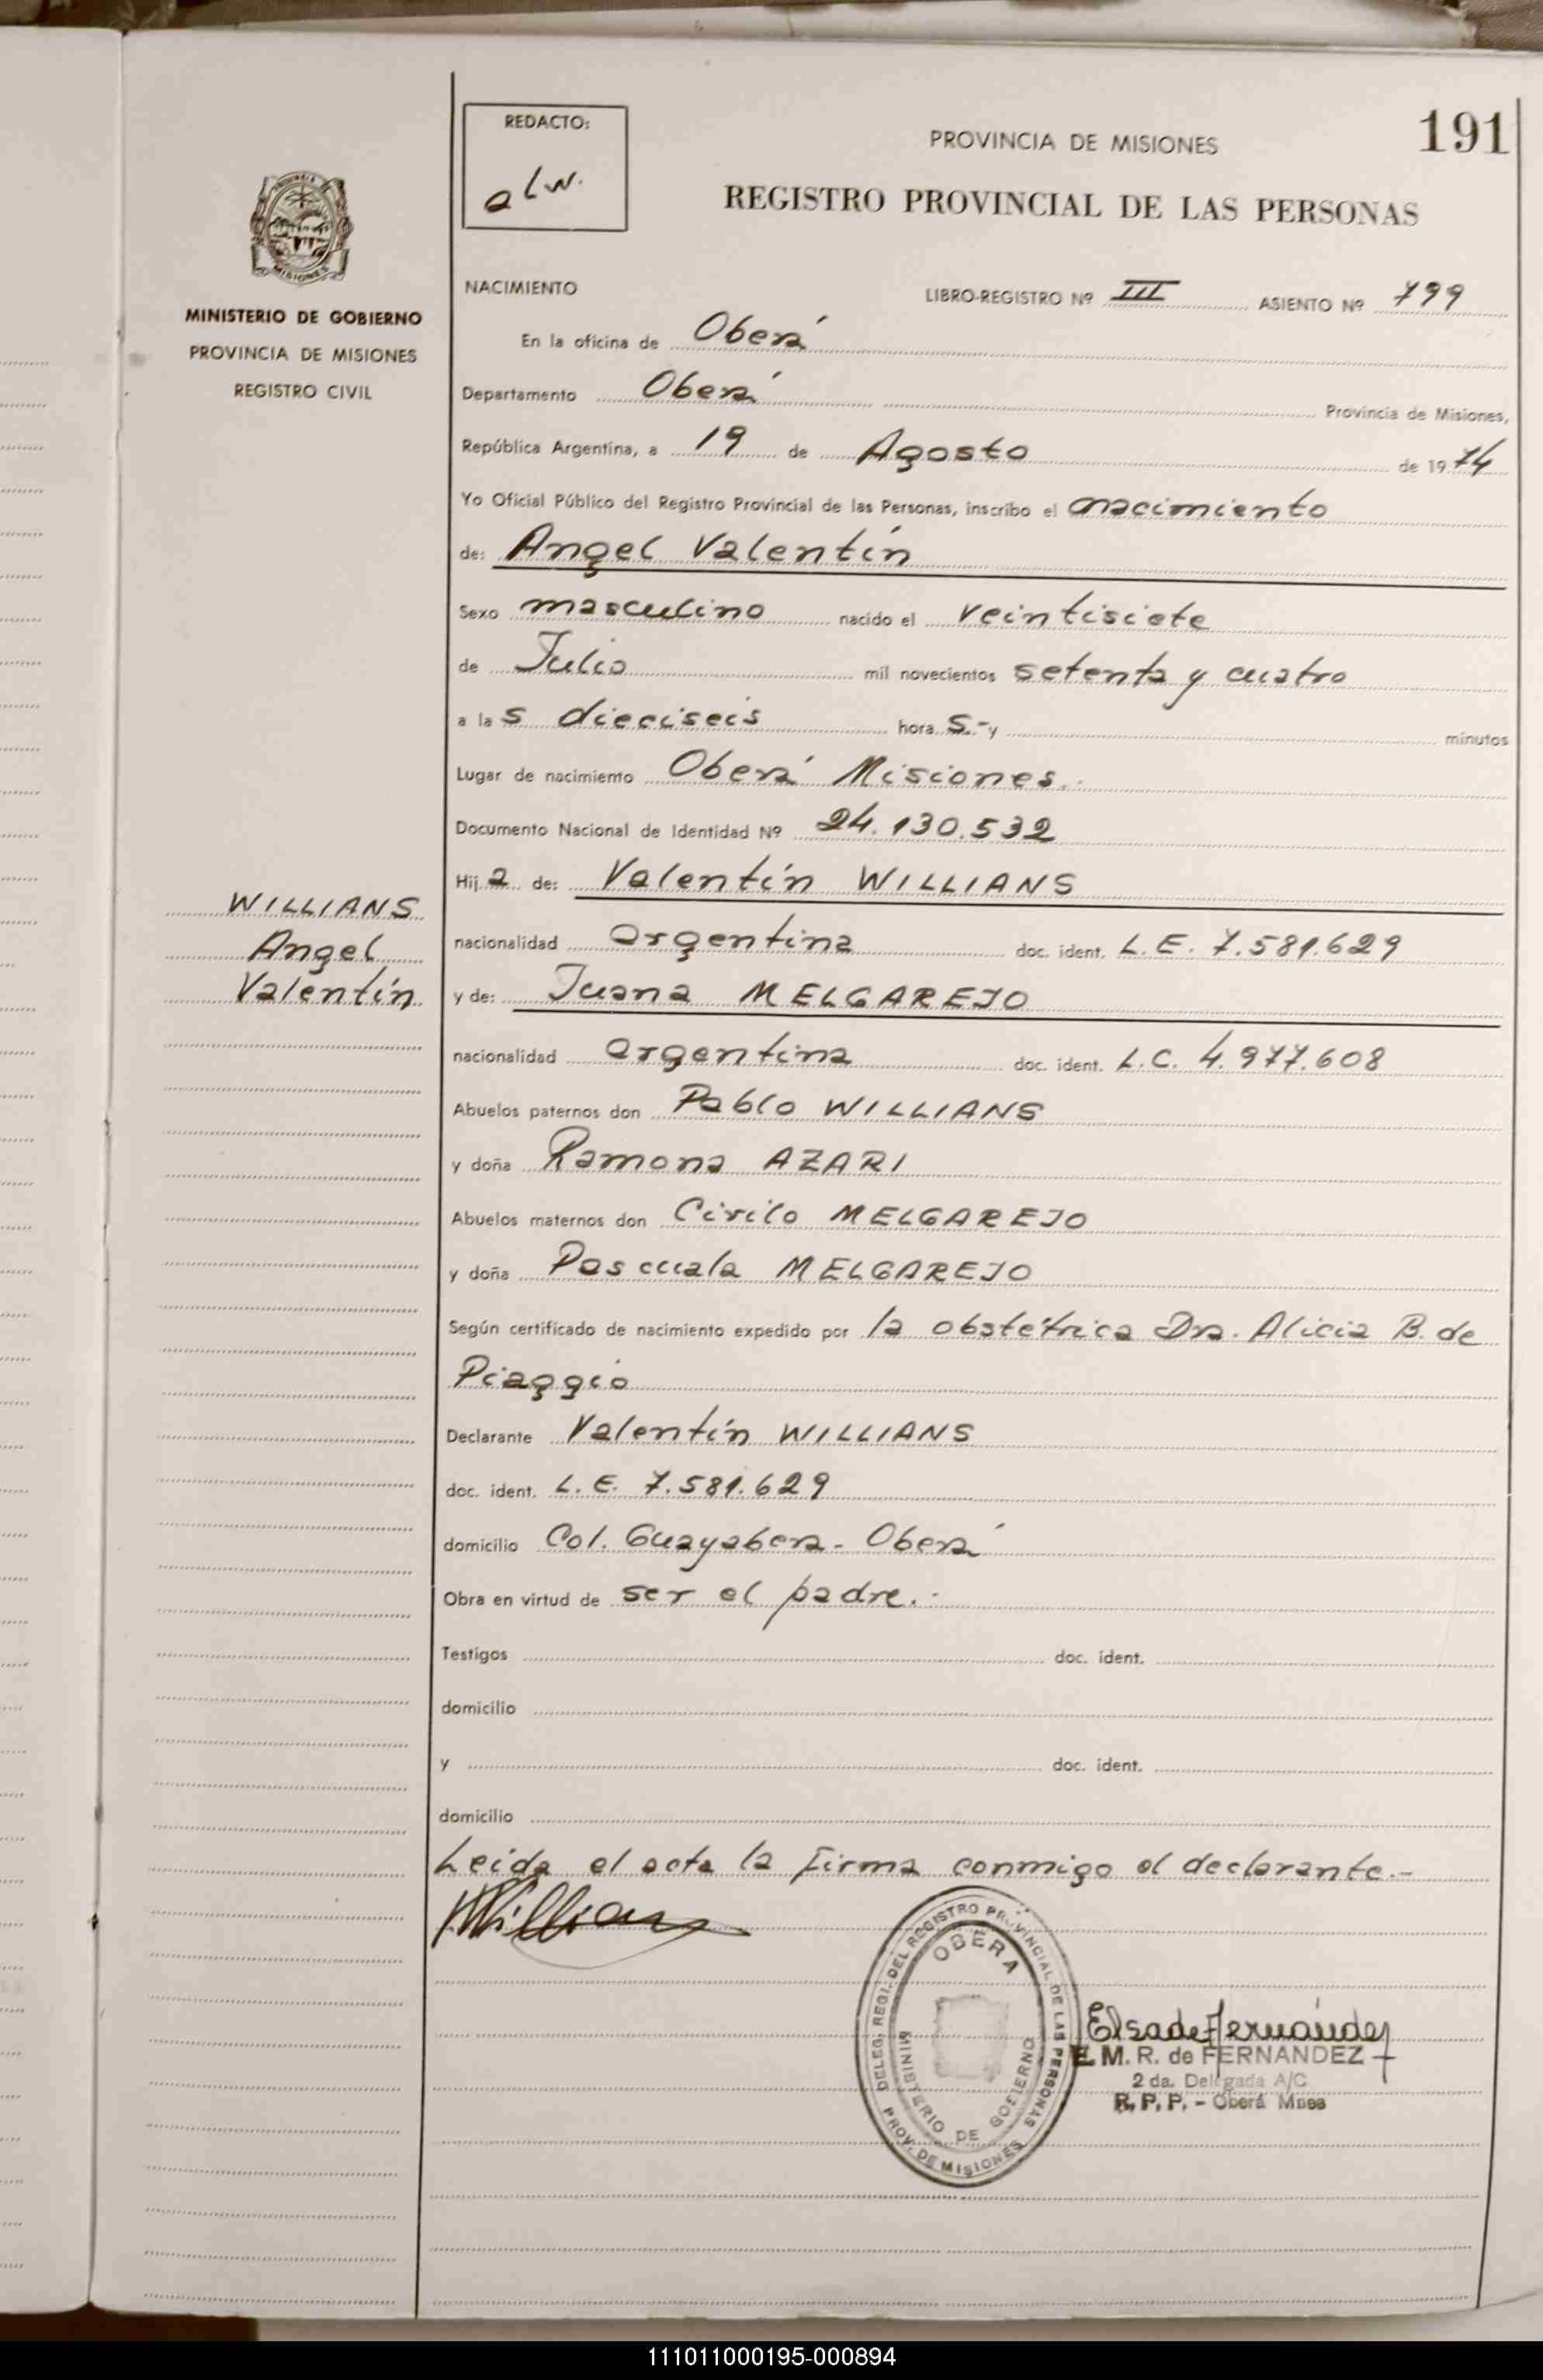 REDACTO:
alw.
PROVINCIA DE MISIONES
191
REGISTRO PROVINCIAL DE LAS PERSONAS
MISIONES
MINISTERIO DE GOBIERNO
PROVINCIA DE MISIONES
REGISTRO CIVIL
NACIMIENTO
LIBRO-REGISTRO Nº III ASIENTO Nº 799
En la oficina de Oberá
Departamento Oberá Provincia de Misiones,
República Argentina, a 19 de Agosto de 1974
Yo Oficial Público del Registro Provincial de las Personas, inscribo el nacimiento
de: Angel Valentín
Sexo masculino nacido el veintisiete
de Julio mil novecientos setenta y cuatro
a las dieciseis horas.- y minutos
Lugar de nacimiento Oberá Misiones.
Documento Nacional de Identidad Nº 24.130.532
Hijo de: Valentín WILLIANS
WILLIANS
Angel
Valentín
nacionalidad argentina doc. ident. L.E. 7.581.629
y de: Juana MELGAREJO
nacionalidad argentina doc. ident. L.C. 4.977.608
Abuelos paternos don Pablo WILLIANS
y doña Ramona AZARI
Abuelos maternos don Cirilo MELGAREJO
y doña Pascuala MELGAREJO
Según certificado de nacimiento expedido por la obstétrica Dra. Alicia B. de
Piaggio
Declarante Valentín WILLIANS
doc. ident. L.E. 7.581.629
domicilio Col. Guayabera - Oberá
Obra en virtud de ser el padre.
Testigos doc. ident.
domicilio
y doc. ident.
domicilio
Leida el acta la firma conmigo el declarante.-
Willians
DELEG. REGI. DEL REGISTRO PROVINCIAL DE LAS PERSONAS
OBERA
MINISTERIO DE GOBIERNO
PROV. DE MISIONES
Elsa de Fernández
E. M. R. de FERNANDEZ
2 da. Delegada A/C
R. P. P. - Oberá Mnes
111011000195-000894